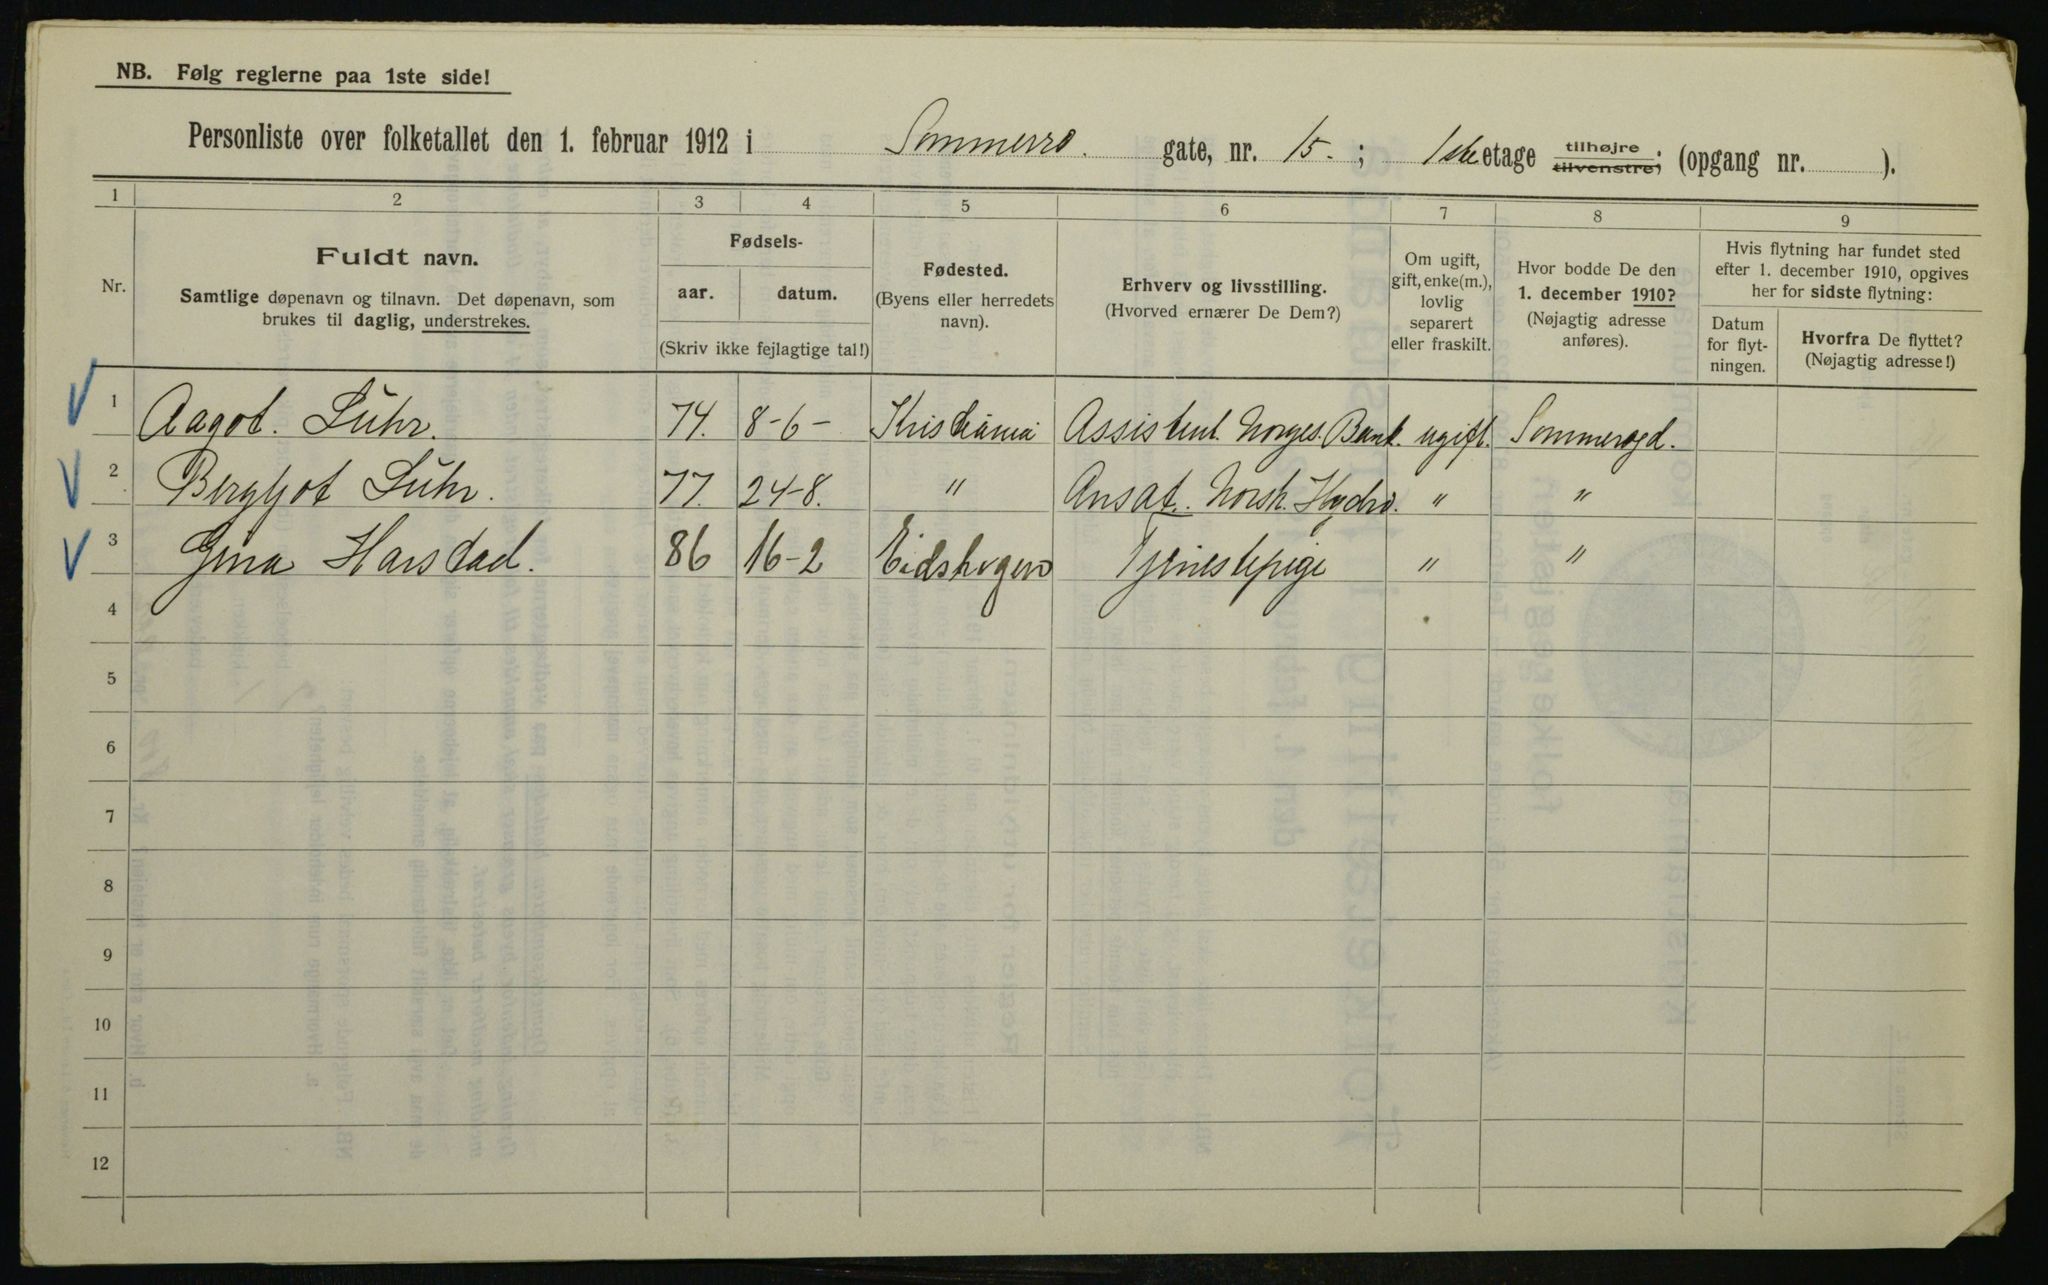 NB. Følg reglerne paa 1ste side!
Personliste over folketallet den 1. februar 1912 i Sommerro. gate, nr. 15. ; 1ste etage tilhøjre tilvenstre; (opgang nr. ).
1 2 3 4 5 6 7 8 9
Nr.
Fuldt navn.
Samtlige døpenavn og tilnavn. Det døpenavn, som
brukes til daglig, understrekes.
Fødsels-
aar. datum.
(Skriv ikke fejlagtige tal!)
Fødested.
(Byens eller herredets
navn).
Erhverv og livsstilling.
(Hvorved ernærer De Dem?)
Om ugift,
gift, enke(m.),
lovlig
separert
eller fraskilt.
Hvor bodde De den
1. december 1910?
(Nøjagtig adresse
anføres).
Hvis flytning har fundet sted
efter 1. december 1910, opgives
her for sidste flytning:
Datum
for flyt-
ningen.
Hvorfra De flyttet?
(Nøjagtig adresse!)
1 Aagot. Lühr. 74. 8-6- Kristiania Assistent. Norges. Bank. ugift. Sommerogd.
2 Bergljot Lühr. 77. 24-8. " Ansat. Norsk. Hydro. " "
3 Gina Harstad. 86 16-2 Tjenestepige " "
4
5
6
7
8
9
10
11
12